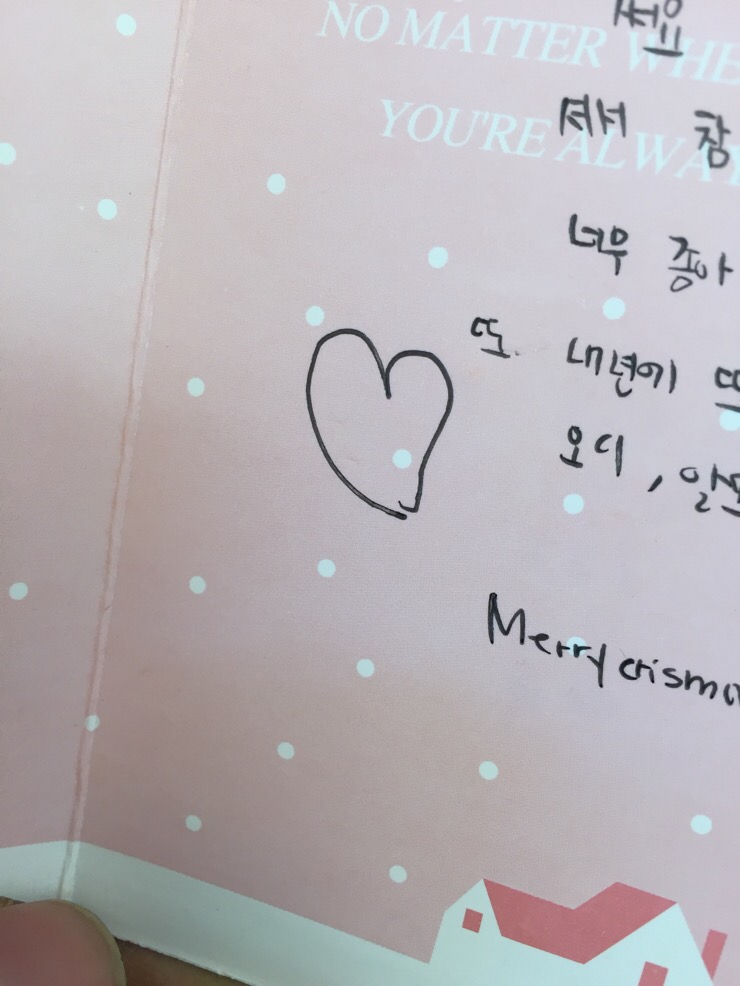 NO MATTER WHE
YOU'RE ALWAY
셔서 참
너무 좋아
또 내년에 또
오디, 알
Merry crisma